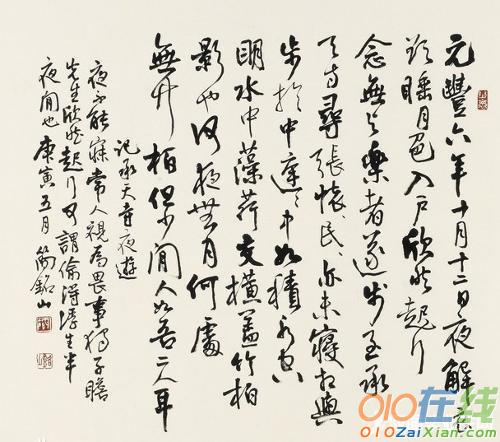 元豐六年十月十二日夜解衣
欲睡月色入戶欣然起行
念無與樂者遂步至承
天寺尋張懷〻民〻亦未寢相與
步於中庭〻中如積水空
明水中藻荇交橫蓋竹柏
影也何夜無月何處
無竹柏但少閒人如吾二人耳
記承天寺夜遊
夜不能寐常人視為畏事獨子瞻
先生欣然起行可謂偷得浮生半
夜閒也庚寅五月銘山
010在线
010ZaiXian.com